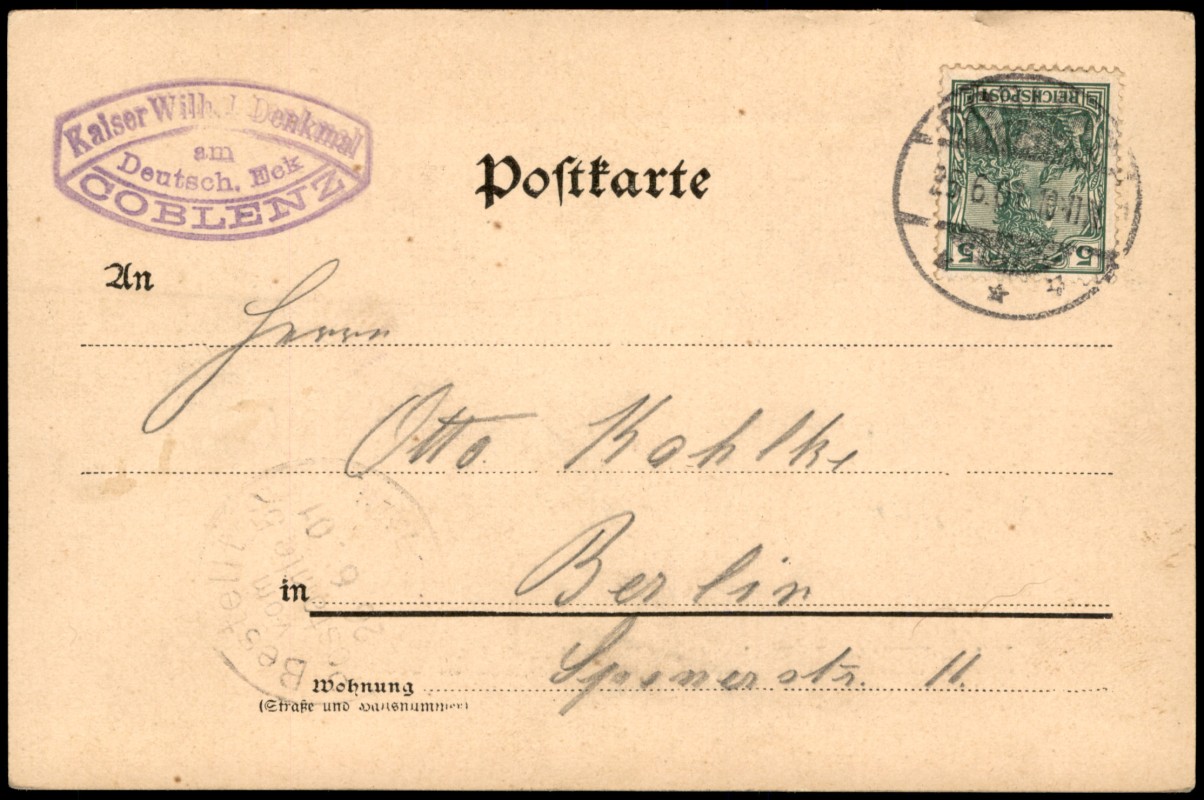 Kaiser Wilh. I. Denkmal
am
Deutsch. Eck
COBLENZ
Poſtkarte
REICHSPOST
5 5
6. 10-11
An
Herrn
Otto Kohlke
in Berlin
Spenerstr. 11.
Wohnung
(Straße und Hausnummer)
Bestellt
vom